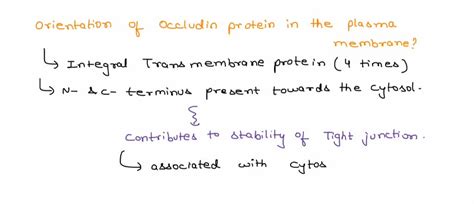 Orientation of Occludin protein in the plasma
membrane?
↳ Integral Transmembrane protein (4 times)
↳ N- & C- terminus present towards the cytosol.
Contributes to stability of Tight junction.
↳ associated with cytos